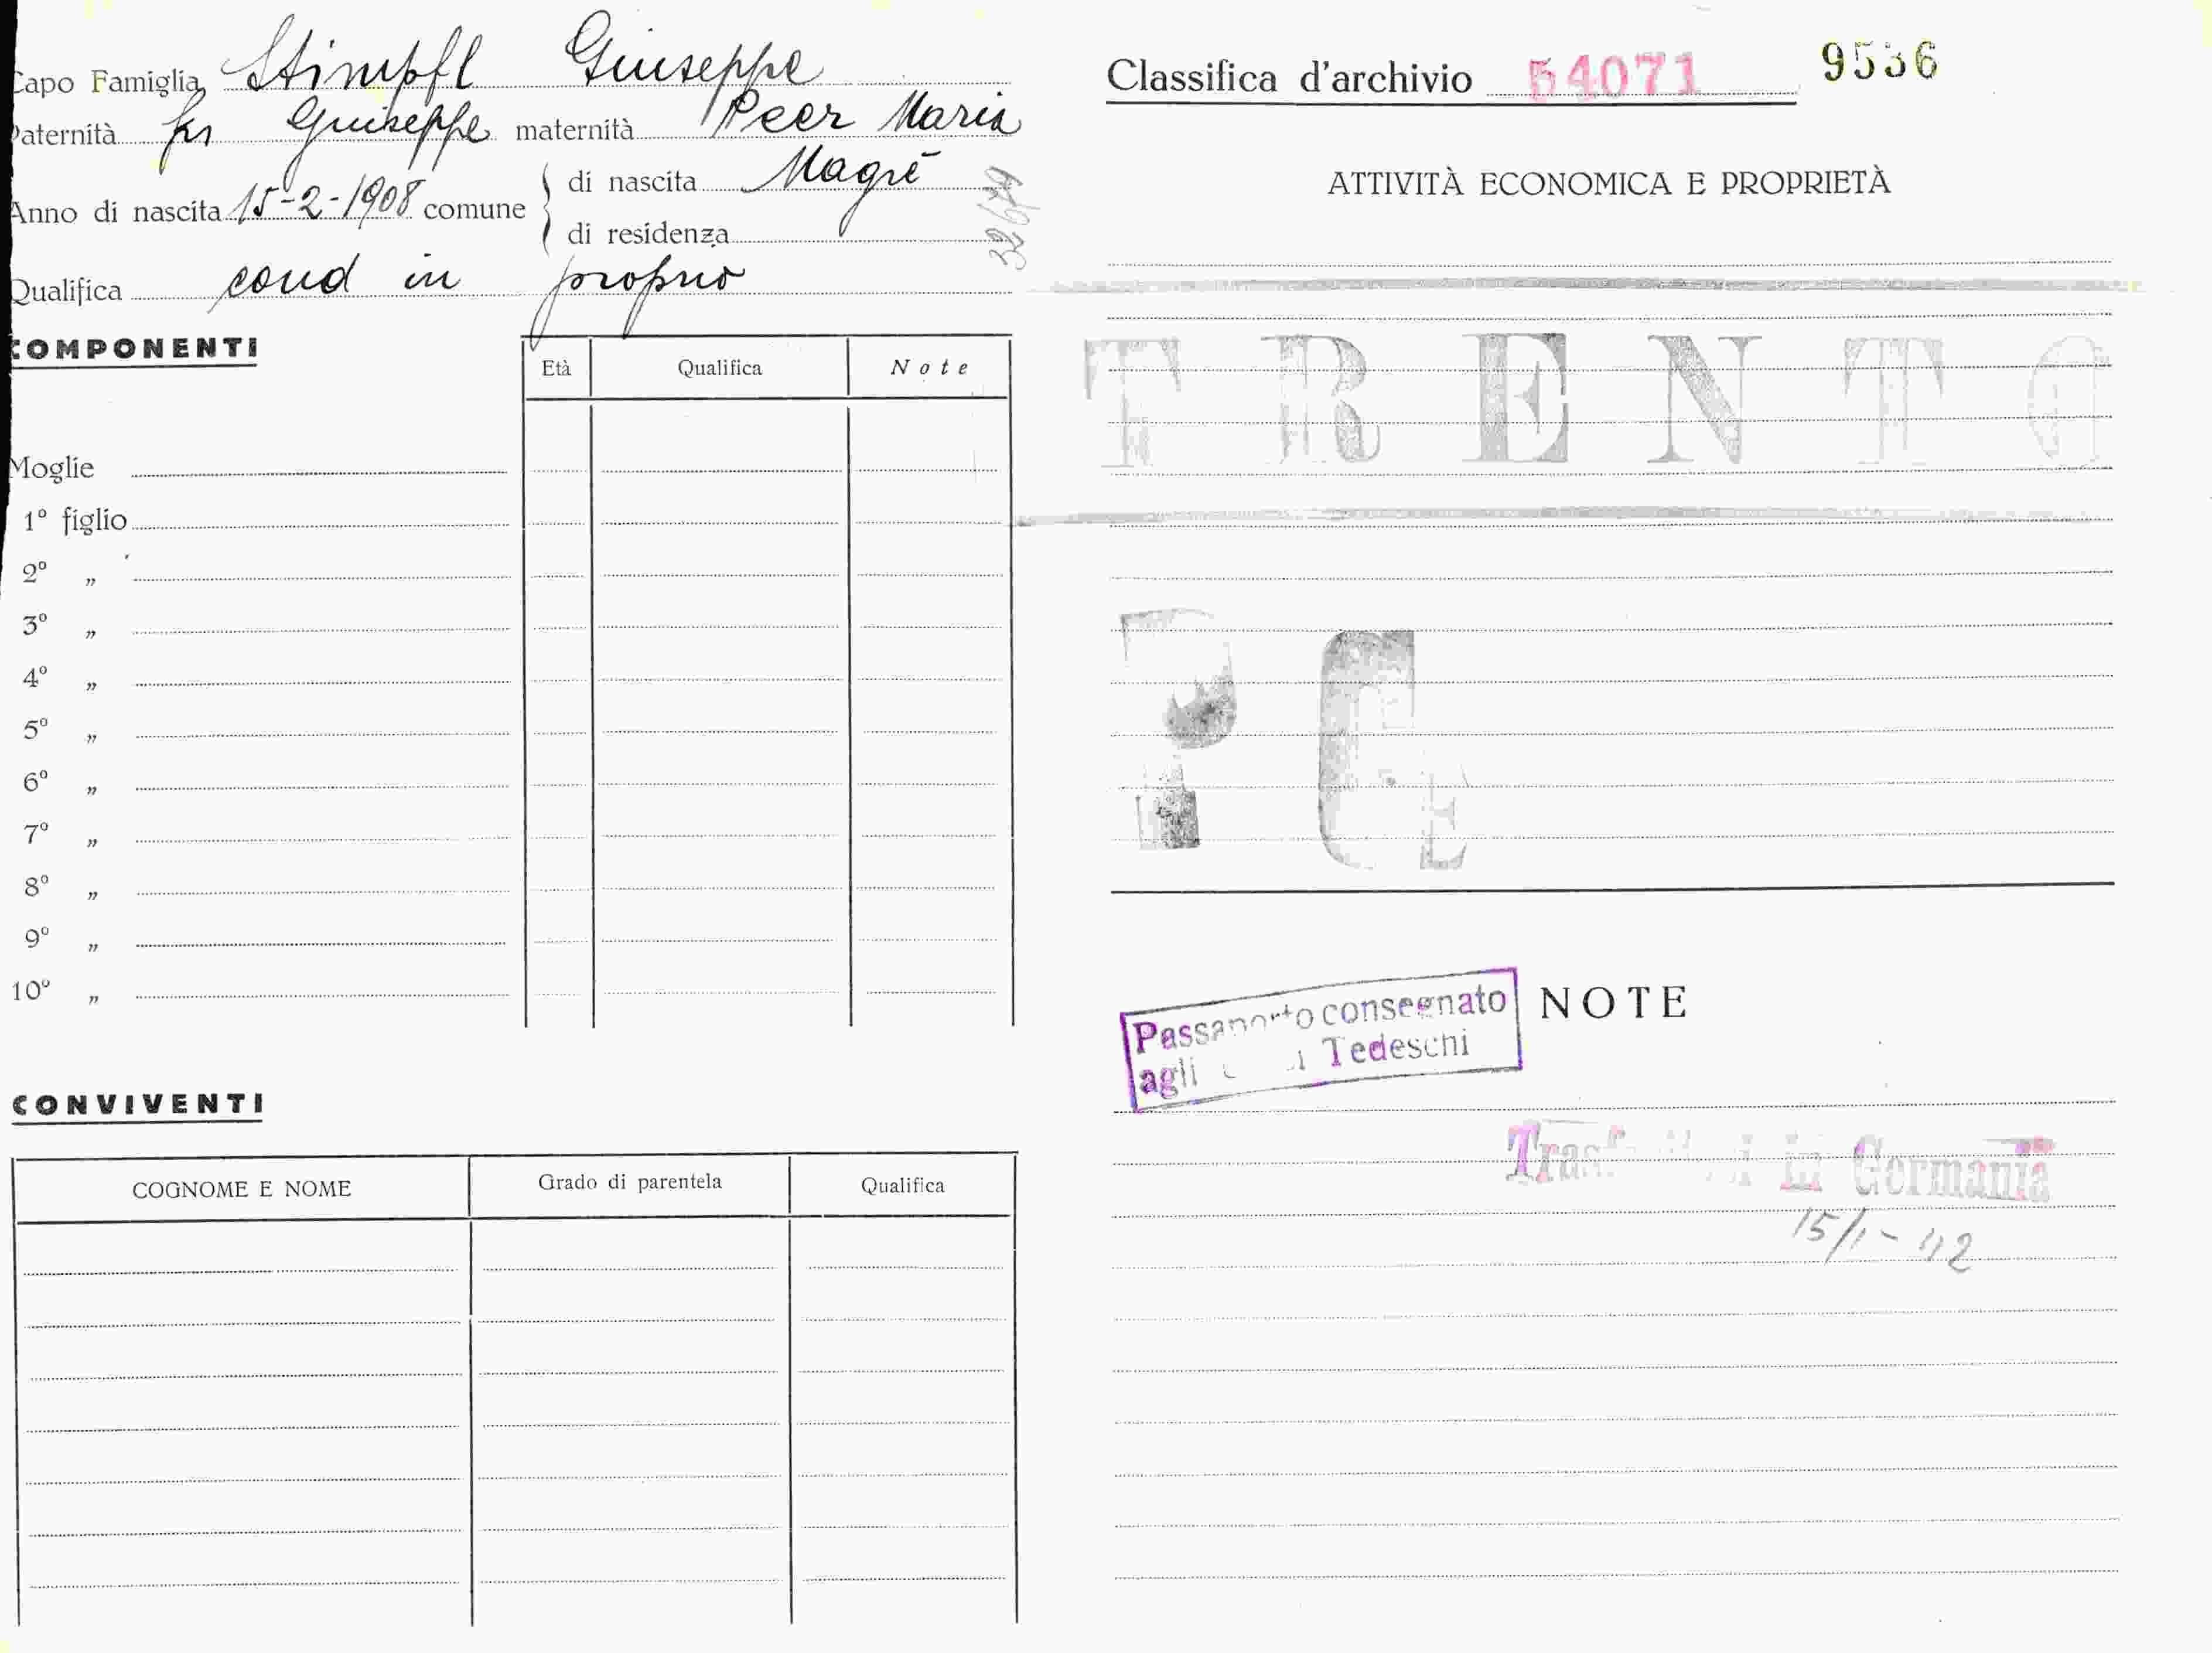 Capo Famiglia Stimpfl Giuseppe
Paternità fu Giuseppe maternità Peer Maria
Anno di nascita 15-2-1908 comune di nascita Magrè
di residenza
32679
Qualifica cond in proprio
COMPONENTI
Età Qualifica Note
Moglie
1º figlio
2º „
3º „
4º „
5º „
6º „
7º „
8º „
9º „
10º „
CONVIVENTI
COGNOME E NOME Grado di parentela Qualifica
Classifica d'archivio 54071 9536
ATTIVITÀ ECONOMICA E PROPRIETÀ
TRENTO
Passaporto consegnato
agli Tedeschi
NOTE
in Germania
15/1-42